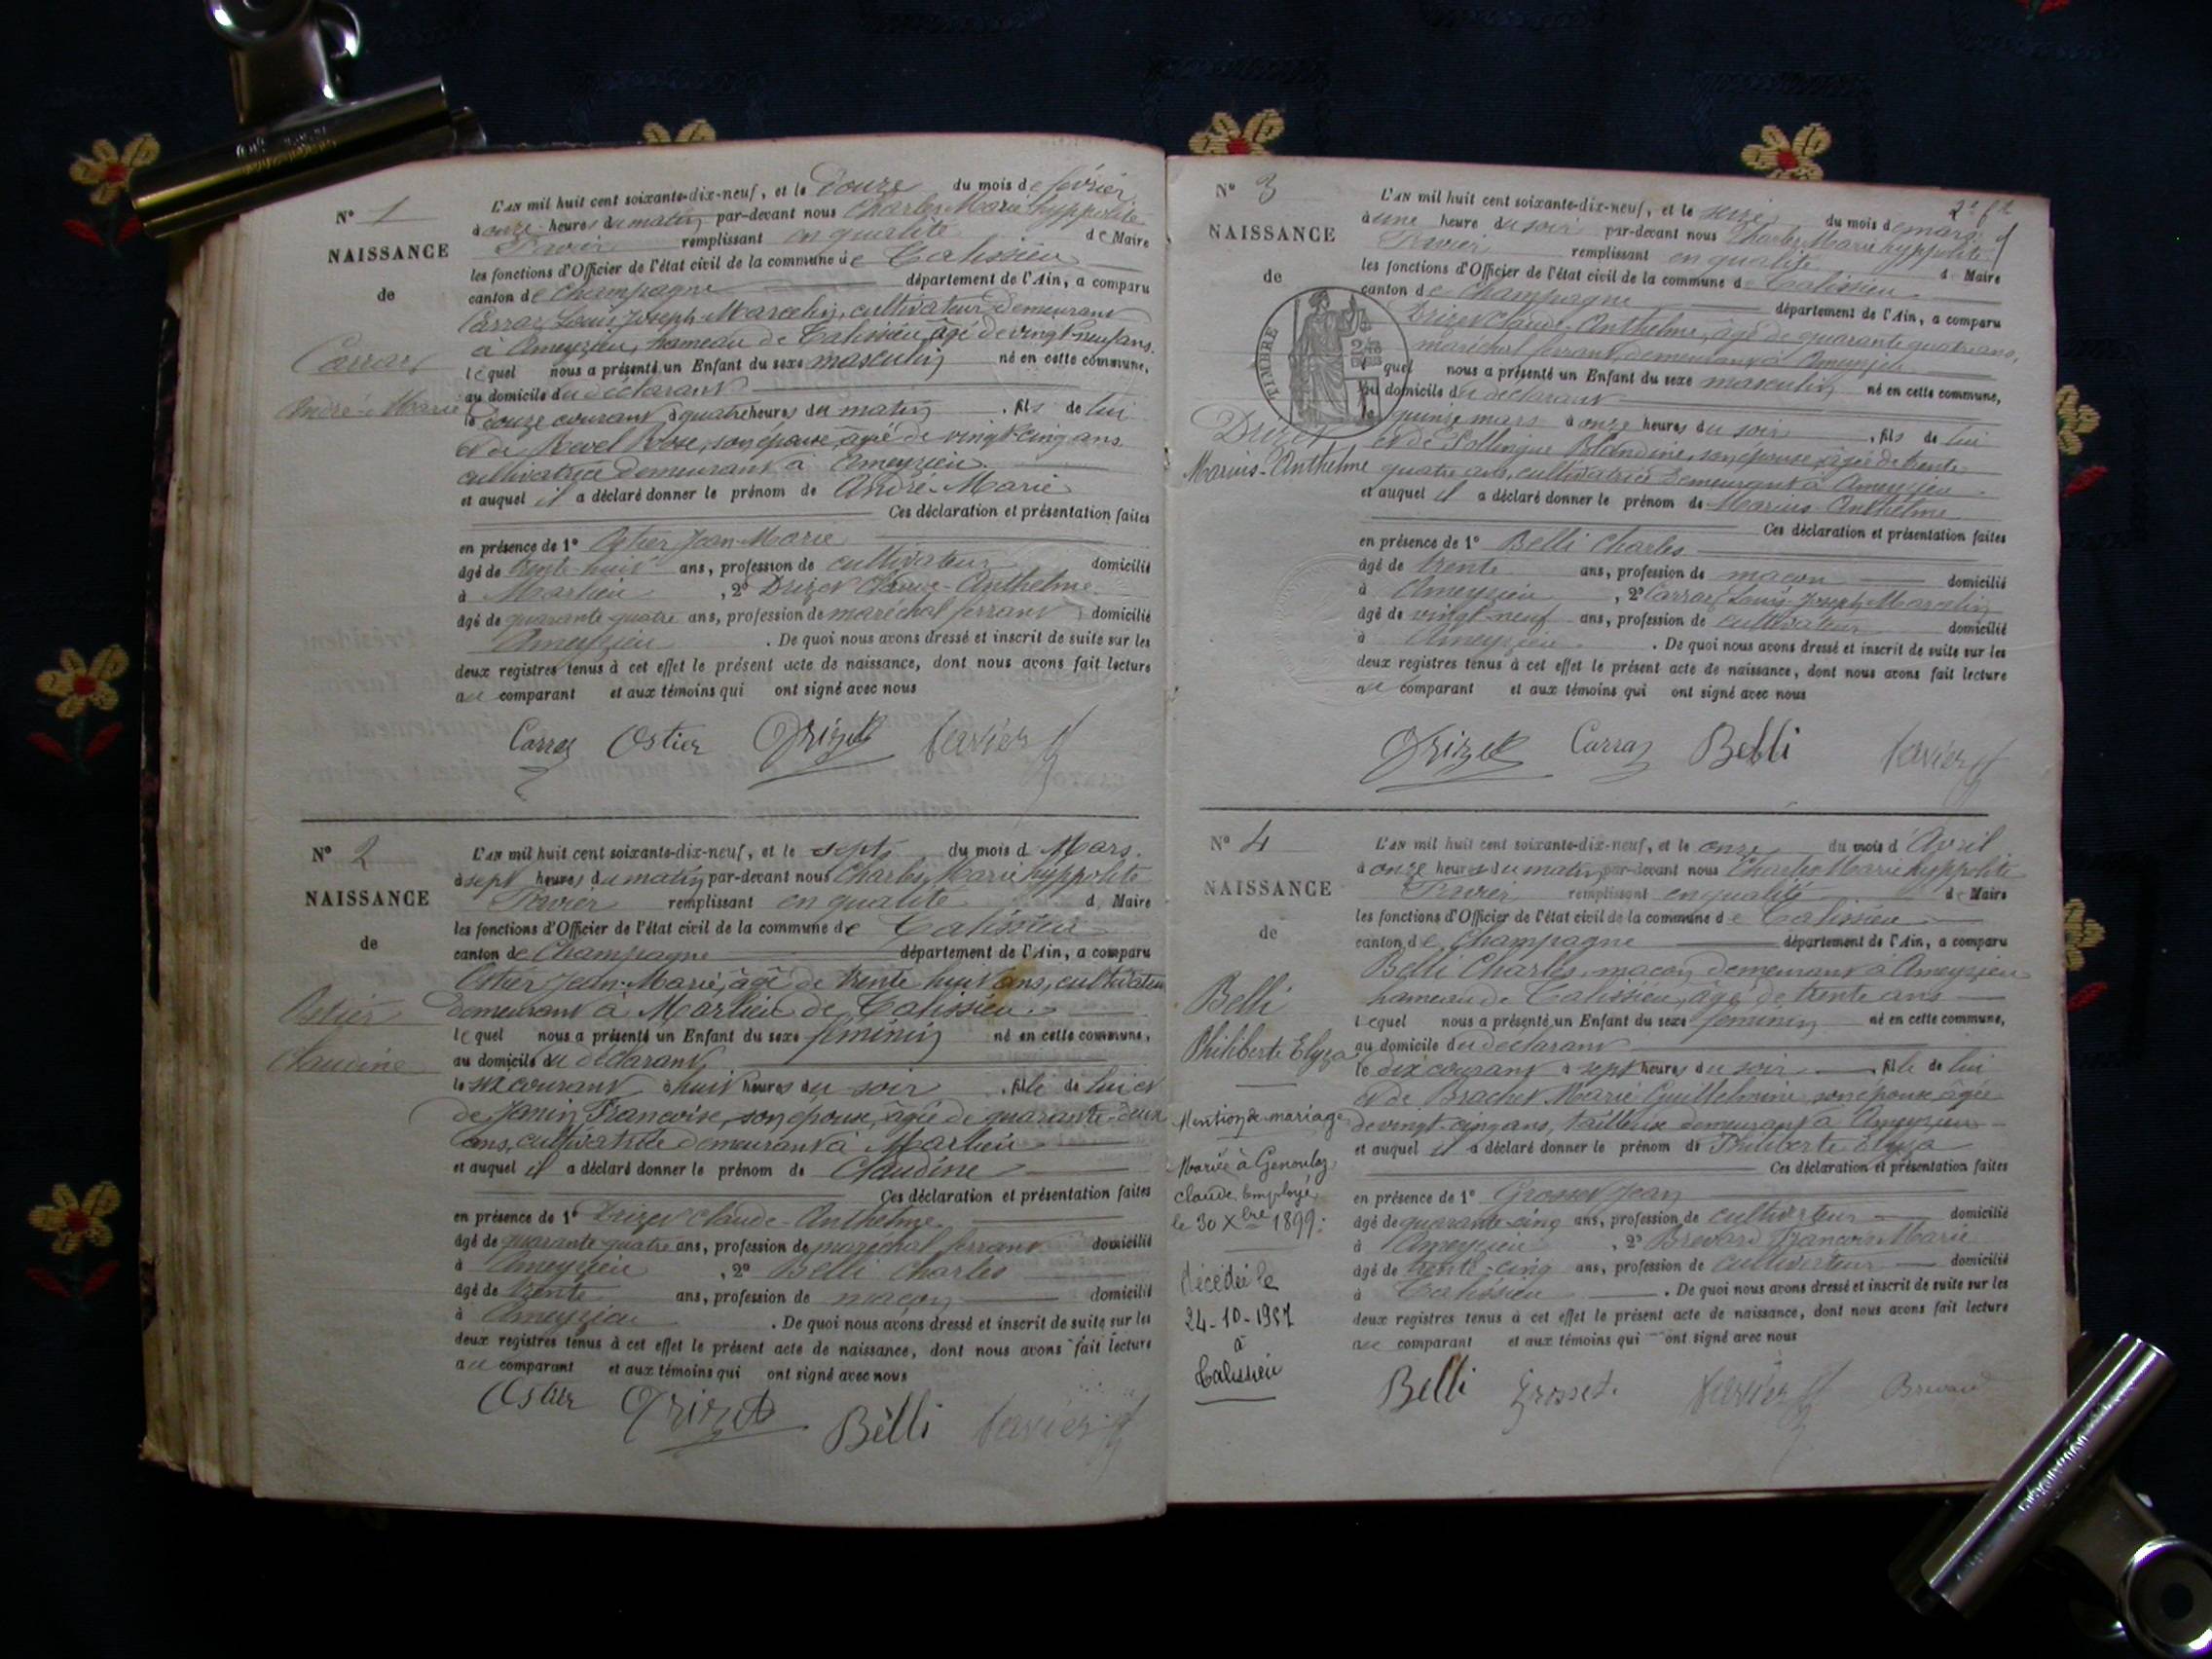 N° 1
NAISSANCE
de
Carraz
André-Marie
L'AN mil huit cent soixante-dix-neuf, et le douze du mois de février
à onze heures du matin par-devant nous Charles Marie hyppolite
Travier remplissant en qualité de Maire
les fonctions d'Officier de l'état civil de la commune de Talissieu
canton de Champagne département de l'Ain, a comparu
Carraz Louis Joseph-Marcelin, cultivateur demeurant
à Ameyzieu, hameau de Talissieu, âgé de vingt-neuf ans.
lequel nous a présenté un Enfant du sexe masculin né en cette commune,
au domicile du déclarant
le douze courant à quatre heures du matin, fils de lui
et de Revel Rose, son épouse, âgée de vingt-cinq ans
cultivatrice demeurant à Ameyzieu.
et auquel il a déclaré donner le prénom de André-Marie
Ces déclaration et présentation faites
en présence de 1° Ostier Jean-Marie
âgé de trente-huit ans, profession de cultivateur domicilié
à Marlieu, 2° Drizet Claude-Anthelme
âgé de quarante quatre ans, profession de maréchal ferrant domicilié
Ameyzieu. De quoi nous avons dressé et inscrit de suite sur les
deux registres tenus à cet effet le présent acte de naissance, dont nous avons fait lecture
au comparant et aux témoins qui ont signé avec nous
Carraz Ostier Drizet Travier
N° 2
NAISSANCE
de
Ostier
Claudine
L'AN mil huit cent soixante-dix-neuf, et le sept du mois d Mars.
à sept heures du matin par-devant nous Charles Marie hyppolite
Travier remplissant en qualité d. Maire
les fonctions d'Officier de l'état civil de la commune de Talissieu
canton de Champagne département de l'Ain, a comparu
Ostier Jean-Marie, âgé de trente huit ans, cultivateur
demeurant à Marlieu de Talissieu.
lequel nous a présenté un Enfant du sexe féminin né en cette commune,
au domicile du déclarant
le six courant à huit heures du soir, fille de lui et
de Janin Francoise, son épouse, âgée de quarante-deux
ans, cultivatrice demeurant à Marlieu
et auquel il a déclaré donner le prénom de Claudine
Ces déclaration et présentation faites
en présence de 1° Drizet Claude-Anthelme.
âgé de quarante quatre ans, profession de maréchal ferrant domicilié
à Ameyzieu, 2° Belli Charles
âgé de trente ans, profession de maçon domicilié
à Ameyzieu. De quoi nous avons dressé et inscrit de suite sur les
deux registres tenus à cet effet le présent acte de naissance, dont nous avons fait lecture
au comparant et aux témoins qui ont signé avec nous
Ostier Drizet Belli Travier
2e ft
N° 3
NAISSANCE
de
TIMBRE
Drizet
Marius-Anthelme
L'AN mil huit cent soixante-dix-neuf, et le seize du mois de mars
à une heure du soir par-devant nous Charles Marie hyppolite
Travier remplissant en qualité de Maire
les fonctions d'Officier de l'état civil de la commune de Talissieu
canton de Champagne département de l'Ain, a comparu
Drizet Claude-Anthelme, âgé de quarante quatre ans,
maréchal ferrant, demeurant à Ameyzieu
quel nous a présenté un Enfant du sexe masculin né en cette commune,
au domicile du déclarant
le quinze mars à onze heures du soir, fils de lui
et de Pollingue Blandine, son épouse âgée de trente
quatre ans, cultivatrice demeurant à Ameyzieu
et auquel il a déclaré donner le prénom de Marius Anthelme
Ces déclaration et présentation faites
en présence de 1° Belli Charles
âgé de trente ans, profession de maçon domicilié
à Ameyzieu, 2° Carraz Louis Joseph Marcelin
âgé de vingt-neuf ans, profession de cultivateur domicilié
à Ameyzieu. De quoi nous avons dressé et inscrit de suite sur les
deux registres tenus à cet effet le présent acte de naissance, dont nous avons fait lecture
au comparant et aux témoins qui ont signé avec nous
Drizet Carraz Belli Travier
N° 4
NAISSANCE
de
Belli
Philiberte Elyza
Mention de mariage
Mariée à Genoulaz
claude, Employé,
le 30 Xbre 1899.
décédée le
24-10-1957
à
Talissieu
L'AN mil huit cent soixante-dix-neuf, et le onze du mois d'Avril
à onze heures du matin par-devant nous Charles Marie hyppolite
Travier remplissant en qualité de Maire
les fonctions d'Officier de l'état civil de la commune de Talissieu
canton de Champagne département de l'Ain, a comparu
Belli Charles maçon, demeurant à Ameyzieu
hameau de Talissieu, âgé de trente ans
lequel nous a présenté un Enfant du sexe feminin né en cette commune,
au domicile du declarant
le dix courant à sept heures du soir, fille de lui
et de Brachet Marie Guillelmine son épouse âgée
de vingt-cinq ans, tailleuse demeurant à Ameyzieu
et auquel il a déclaré donner le prénom de Philiberte Elyza
Ces déclaration et présentation faites
en présence de 1° Grosset Jean
âgé de quarante-cinq ans, profession de cultivateur domicilié
à Ameyzieu, 2° Brevard Francois Marie
âgé de trente-cinq ans, profession de cultivateur domicilié
à Talissieu. De quoi nous avons dressé et inscrit de suite sur les
deux registres tenus à cet effet le présent acte de naissance, dont nous avons fait lecture
au comparant et aux témoins qui ont signé avec nous
Belli Grosset Travier Brevard